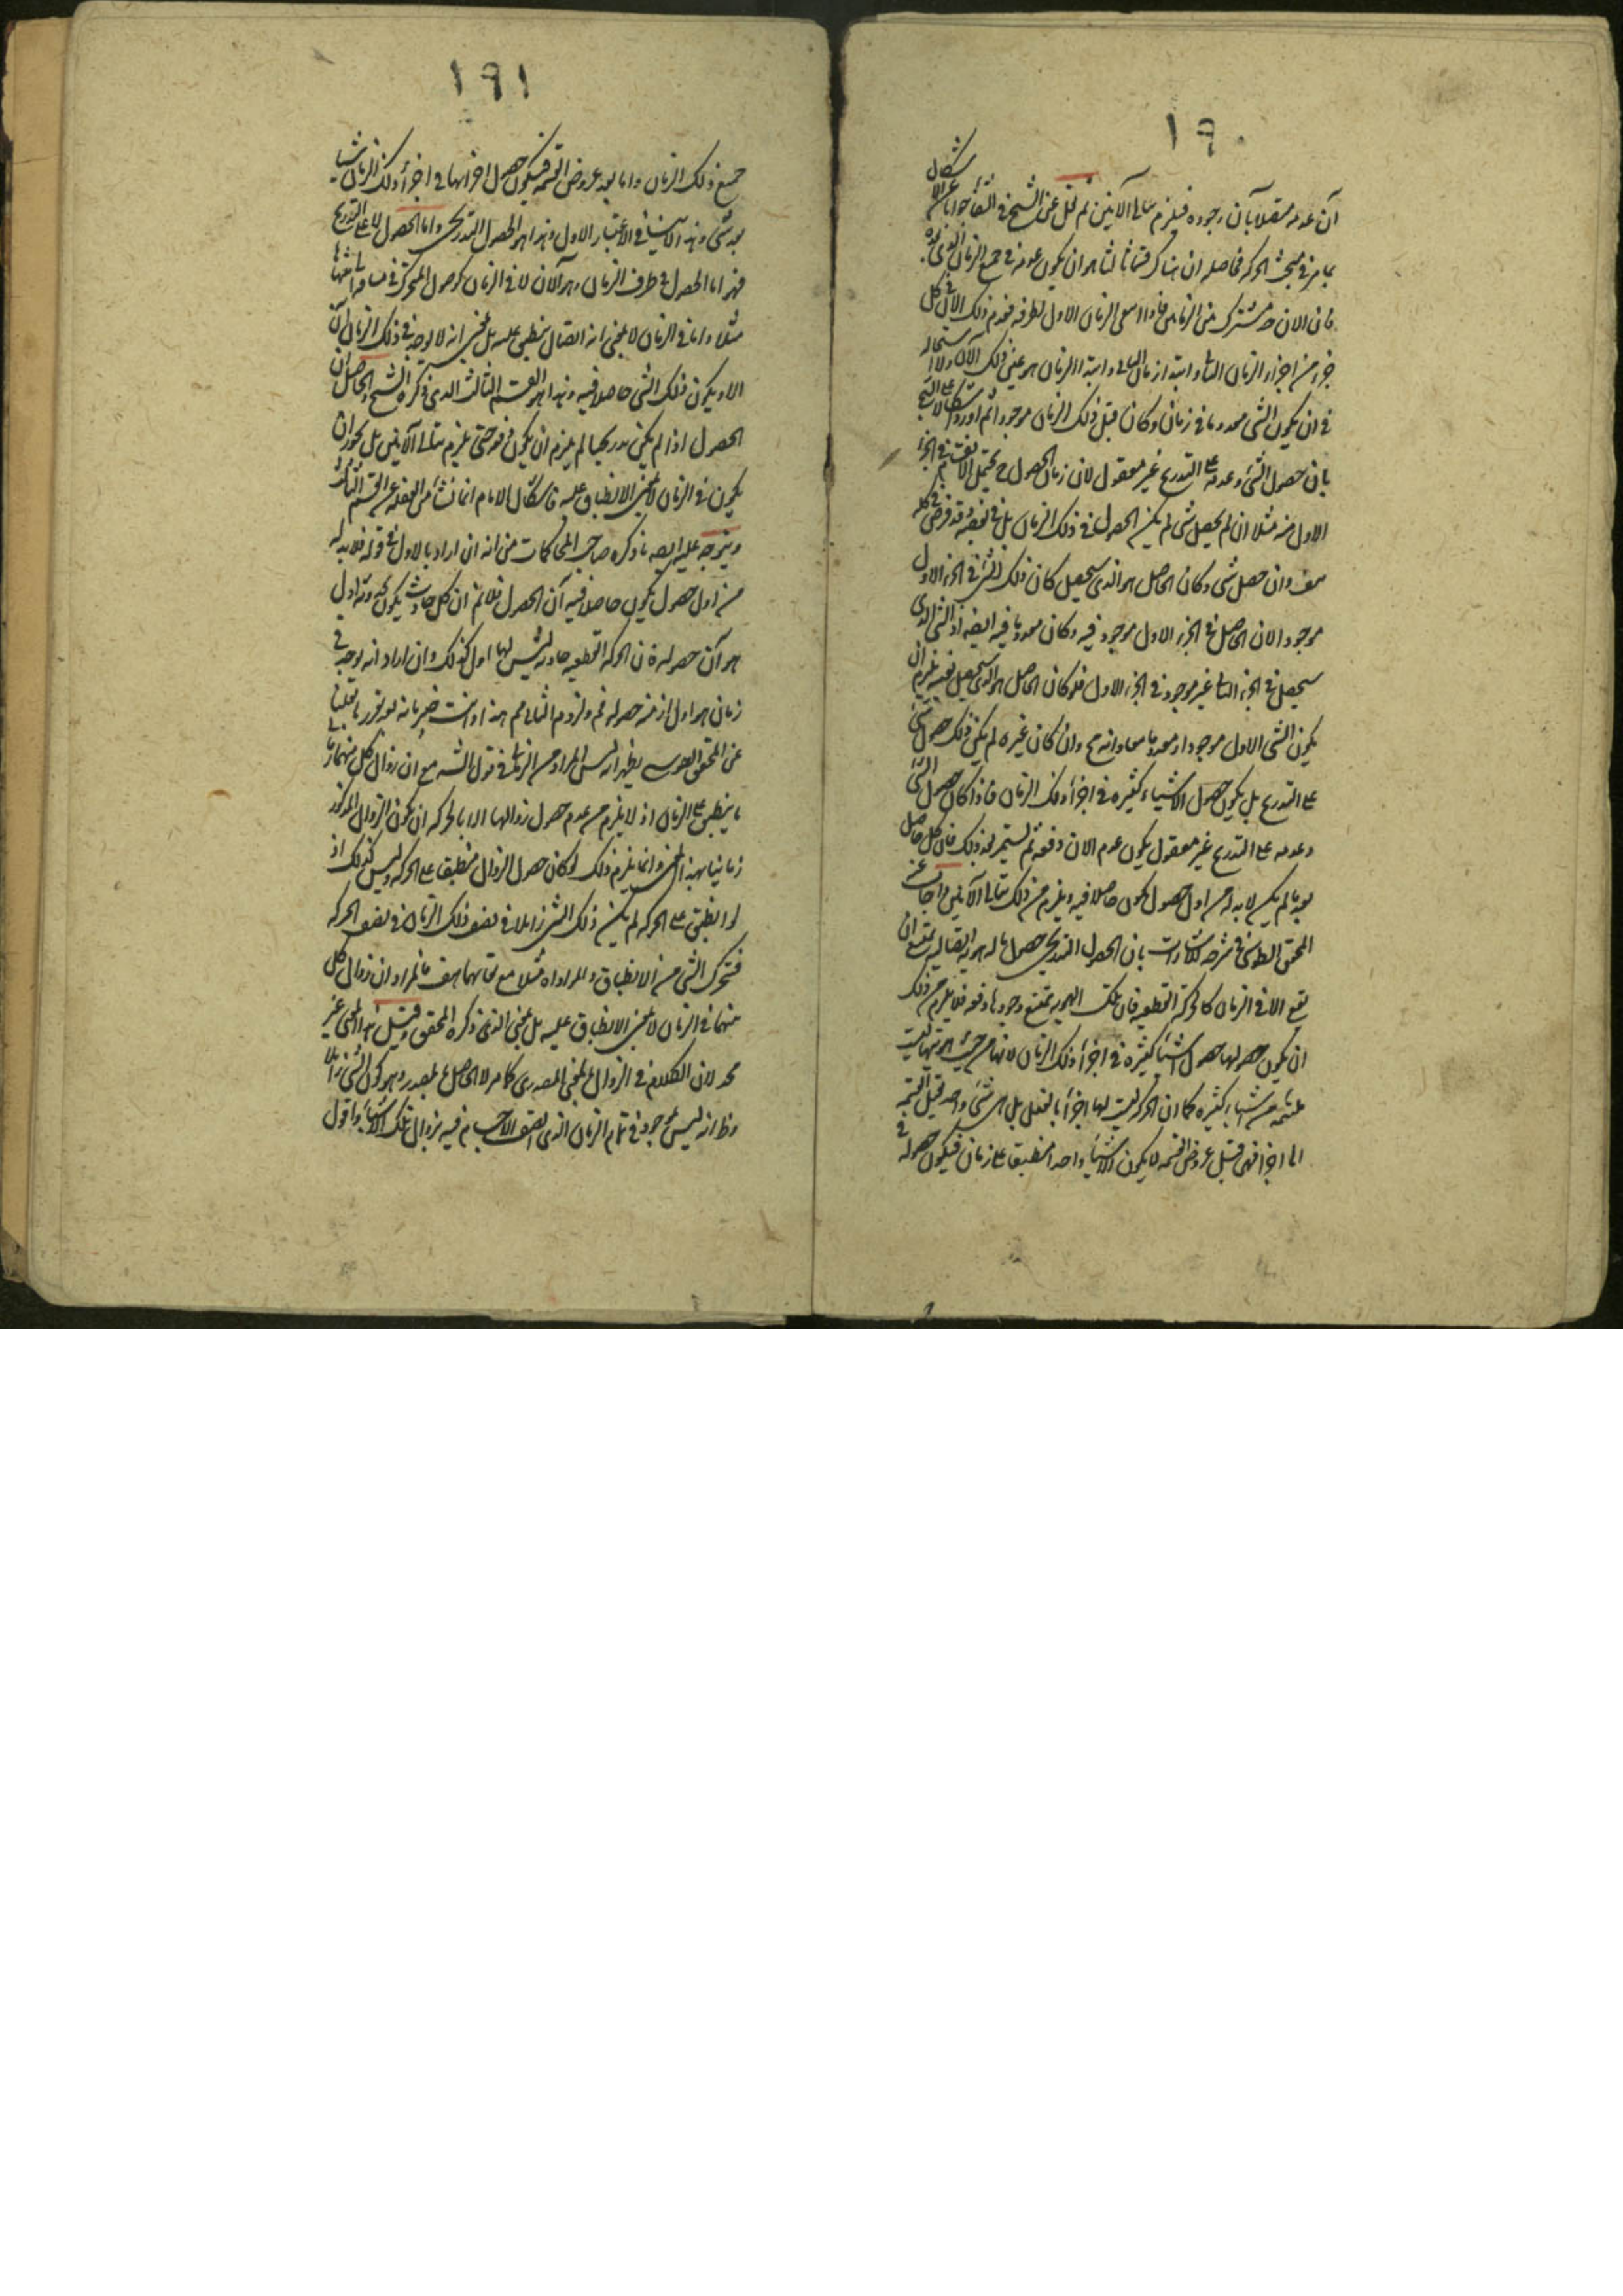 ١٩٠
آن عدمه متصلا بآن وجوده فيلزم تتالى الآنين ثم نقل عن الشيخ في الشفا جوابا عن الاشكال
بما مر في مبحث الحركة فحاصله ان هناك قسما ثالثا هو ان يكون عدمه في جميع الزمان الذى
فان الان حد مشترك بين الزمانين فاذا الزمان الاول لطرفه فعدم ذلك الان في كل
جزء من اجزاء الزمان الثانى وابتداء زمان وابتداء الزمان هو عين ذلك الآن ولا استحالة
في ان يكون الشئ معدوما في زمان وكان قبل ذلك الزمان موجودا ثم اورد على
بان حصول الشئ وعدمه على التدريج غير معقول لان زمان الحصول يحتمل الانقسام في الجزء
الاول منه مثلا ان لم يحصل شئ لم يكن الحصول في ذلك الزمان بل في نصفه وقد فرض في كله
هف وان حصل شئ وكان الحاصل هو الذى سيحصل كان ذلك الشئ في الجزء الاول
موجودا لان الحاصل في الجزء الاول موجود فيه وكان معدوما فيه ايضا اذ الشئ الذى
سيحصل في الجزء الثانى غير موجود في الجزء الاول فلو كان الحاصل هو الذى سيحصل بعينه يلزم ان
يكون الشئ الاول موجودا ومعدوما معا وانه مح وان كان غيره لم يكن ذلك حصول شئ
على التدريج بل يكون حصول الاشياء كثيرة في اجزاء ذلك الزمان فاذا كان حصول الشئ
وعدمه على التدريج غير معقول يكون عدم الان دفعة ثم يستمر بعد ذلك فان كل حاصل
بعد ما لم يكن لا بد له من اول حصول يكون حاصلا فيه ويلزم من ذلك تتالى الآنين واجاب عنه
المحقق الطوسى في شرحه للاشارات بان الحصول التدريجى حصول ما له هوية اتصالية يمتنع ان
تقع الا في الزمان كالحركة القطعية فان تلك الهوية يمتنع وجودها دفعة فلا يلزم من ذلك
ان يكون حصولها حصول اشياء كثيرة في اجزاء ذلك الزمان لانها من حيث هويتها ليست
ملتئمة من اشياء كثيرة كما ان الحركة ليست لها اجزاء بالفعل بل هى شئ واحد تقبل القسمة
الى اجزاء فهى قبل عروض القسمة لا يكون الا شيئا واحدا منطبقا على زمان فيكون حصوله في
١٩١
جميع ذلك الزمان واما بعد عروض القسمة فيكون حصول اجزائها في اجزاء ذلك الزمان شيئا
بعد شئ وهذا لا ينافى الاعتبار الاول وهذا هو الحصول التدريجى واما الحصول لا على التدريج
فهو اما الحصول في طرف الزمان وهو الآن لا في الزمان كوصول المتحرك في مسافة الى منتهاها
مثلا واما في الزمان لا بمعنى انه اتصال ينطبق عليه بل بمعنى انه لا يوجد في ذلك الزمان آن
الا ويكون ذلك الشئ حاصلا فيه وهذا هو القسم الثالث الذى ذكره الشيخ والحاصل ان
الحصول اذا لم يكن تدريجيا لم يلزم ان يكون دفعة حتى يلزم تتالى الآنين بل يجوز ان
يكون في الزمان لا بمعنى الانطباق عليه فاشكال الامام انما نشأ من الغفلة عن القسم الثالث
ويتوجه عليه ايضا ما ذكره صاحب المحاكمات من انه ان اراد بالاول في قوله فلا بد له
من اول حصول يكون حاصلا فيه آن الحصول فلا نم ان كل حادث يكون لحدوثه اول
هو آن حصوله فان الحركة القطعية حادثة ليس لها اول كذلك وان اراد انه يوجد في
زمان هو اول ازمنة حصوله فم ولزوم التتالى مم هذا وانت خبير بانه بعد تقرر ما نقلنا
عن المحقق الطوسى يظهر انه ليس المراد من الزمانى في قول الش مع ان زوال كل منهما زمانى
ما ينطبق على الزمان اذ لا يلزم من عدم حصول زوالها الا بالحركة ان يكون الزوال المذكور
زمانيا بهذا المعنى وانما يلزم ذلك لو كان حصول الزوال منطبقا على الحركة وليس كذلك اذ
لو انطبق على الحركة لم يكن ذلك الشئ زائلا في نصف ذلك الزمان في نصف الحركة
فتحرك الشئ من الانطباق والموازاة مثلا مع بقائهما هف فالمراد ان زوال كل
منهما في الزمان لا بمعنى الانطباق عليه بل بمعنى الذى ذكره المحقق وقيل هذا المعنى غير
محمد لان الكلام في الزوال بالمعنى المصدرى كما مر لا الحاصل بالمصدر وهو كون الشئ زائلا
وظ انه ليس موجودا في تمام الزمان الذى اتصف الاجسام فيه بزوال تلك الاشياء واقول